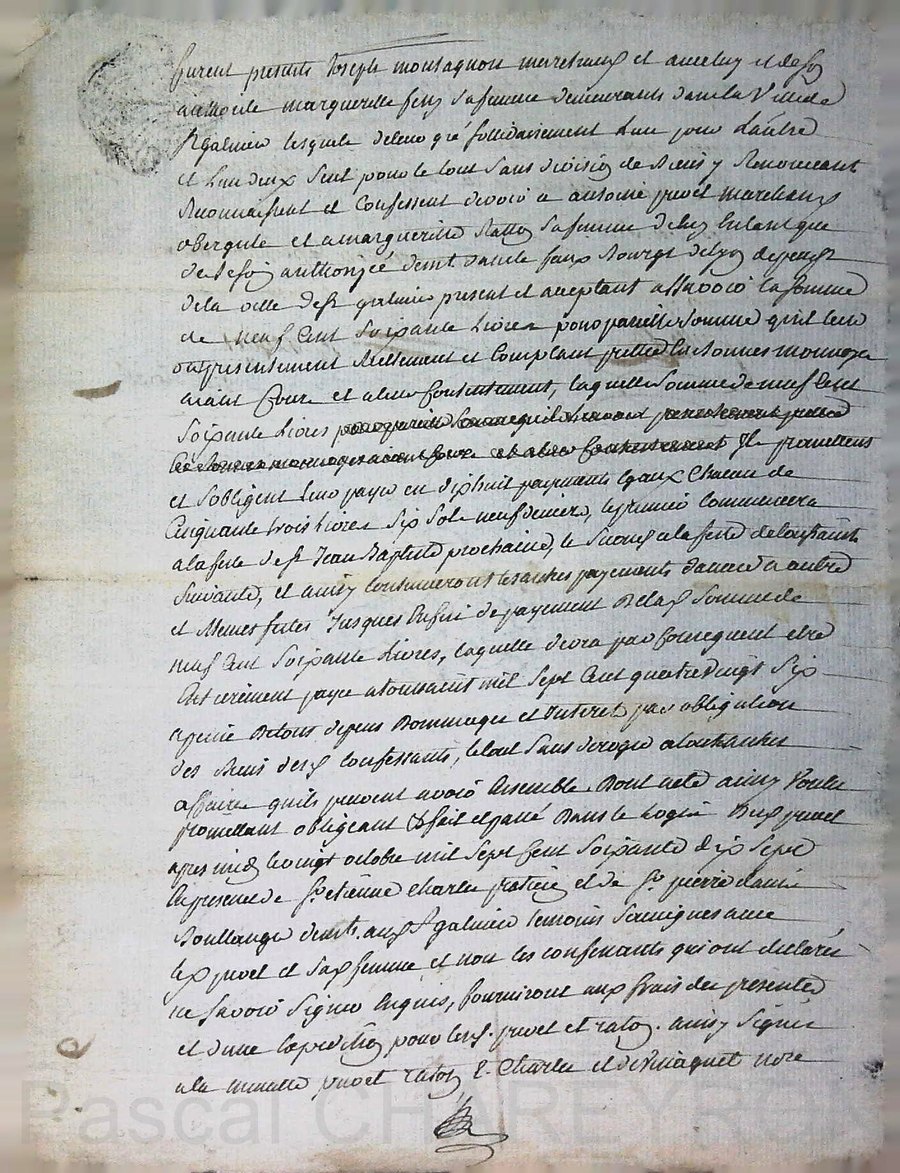 furent presents Joseph montagnon marechal et avec luy et de soy
authorisée margueritte sa femme demeurants dans la Ville de
St galmier lesquels de leur gré sollidairement L'un pour Lautre
et L'un deux seul pour le tout sans division de Biens y Renonceant
Reconnaissent et Confessent devoir a antoine privet marchand
obergiste et a margueritte Raton sa femme de luy Entant que
de Besoin authorisée demt. dans le faux Bourgt
de la ville de St galmier present et acceptant assavoir la somme
de neuf Cent Soixante Livres pour pareille somme quil leur
ont presentement Réellement et Comptant prettée les Bonnes monnoye
aiant Cour et a leur Consentement, laquelle somme de neuf Cent
Soixante Livres pour pareille somme quil leur ont presentement prettée
les Bonnes monnoyes aiant Cour et a leur Consentement Ils promettent
et s'obligent leur payer en dix huit payments Egaux Chacun de
Cinquante trois Livres Six Sols neuf deniers, le premier Commencera
a la feste de St Jean Baptiste prochaine, le second a la feste de la toussaint
Suivante, et ainsy Continueront les autres payements d'année a autre
et Memes festes Jusques Enfin de payement De lad. Somme de
neuf Cent Soixante Livres, laquelle devra par Consequent etre
Entierement paye a toussaint mil Sept Cent quatre vingt Six
a peine De tous depens Dommages et Interet par obligation
des Biens desd. Confessants, le tout Sans deroger a toutes autres
affaires quils peuvent avoir Ensemble. Dont acte ainsy Voulu
promettant obligeant &c fait et passé Dans le Logis Dud. privet
apres midy le vingt octobre mil Sept Cent Soixante dix Sept
En presence de Sr. etienne Charles praticien et de Sr. pierre
Boullange demts. aud. St galmier temoins Soussignes avec
led. privet et Sad. femme et non les confessants qui ont declarés
ne Savoir Signer Enquis, fourniront aux frais des presentes
et d'une Expedition pour lesd. privet et raton. ainsy Signés
a la minutte privet raton E. Charles et devinaquet nore
Pascal CHAREYRON